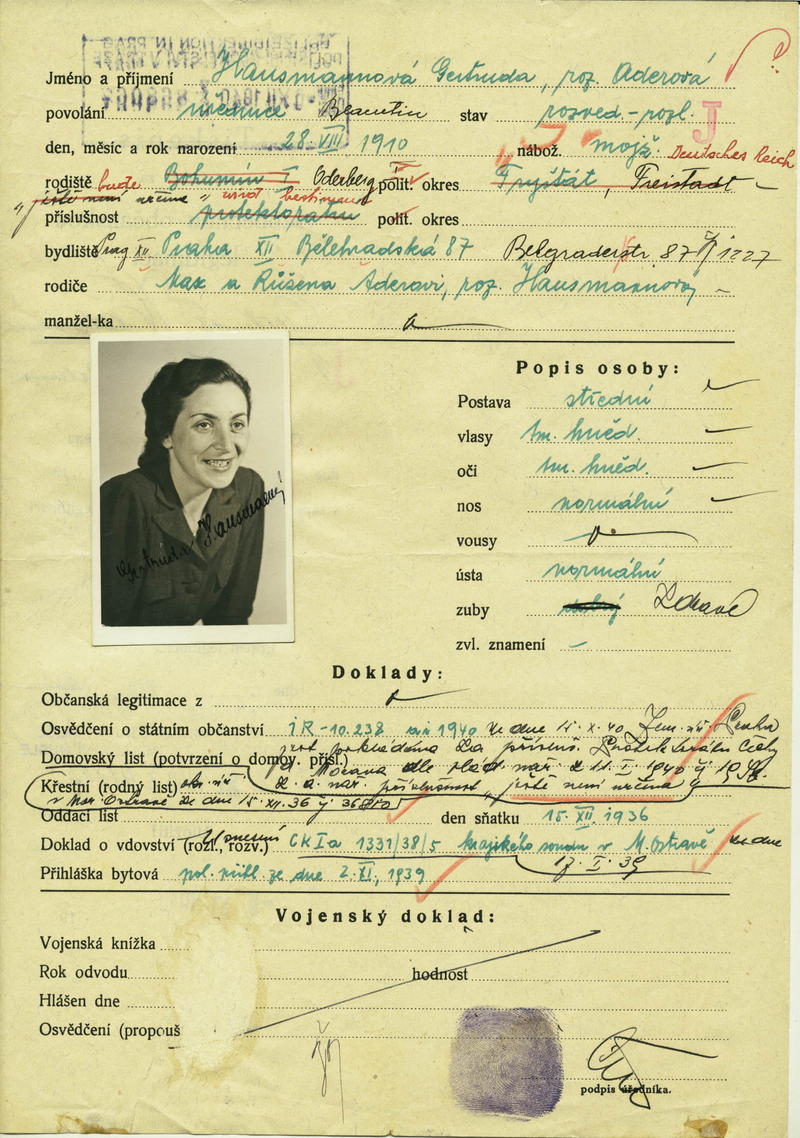 Jméno a příjmení Hausmannová Gertruda, roz. Aderová
povolání úřednice Beamtin stav rozved. - rozl. J
den, měsíc a rok narození 28. VIII. 1910 nábož. mojž. Deutsches Reich
rodiště bude Bohumín I Oderberg polit. okres Fryštát, Freistadt
"ještě není určena" wird bestimmt
příslušnost protektorátu polit. okres
bydliště Prag XII Praha XII Bělehradská 87 Belgraderstr. 87 1227
rodiče Max a Růžena Aderovi, roz. Hausmannovy
manžel-ka
Popis osoby:
Postava střední
vlasy tm. hněd.
oči tm. hněd.
nos normální
vousy
ústa normální
zuby zdravé
zvl. znamení
Gertruda Hausmannová
Doklady:
Občanská legitimace z
Osvědčení o státním občanství IR-10.238 1940 ze dne 15. X. 40 Zem. úř. Praha
Domovský list (potvrzení o domov. přísl.) jest pokládána za přísluš. Protektorátu Čechy
Morava dle vlád. nař. z 11. I. 1940 č. 19/40.
Křestní (rodný list) z. a nář. příslušnost "ještě není určena"
v Mor. Ostravě ze dne 15. XII. 36 č.
Oddací list den sňatku 15. XII. 1936
Doklad o vdovství (rozl., rozv.) Usnesení CK Ia 1331/38/5 krajského soudu v M. Ostravě ze dne
17. I. 39
Přihláška bytová pol. řed. ze dne 2. XI. 1939
Vojenský doklad:
Vojenská knížka
Rok odvodu hodnost
Hlášen dne
Osvědčení (propouš
podpis úředníka.